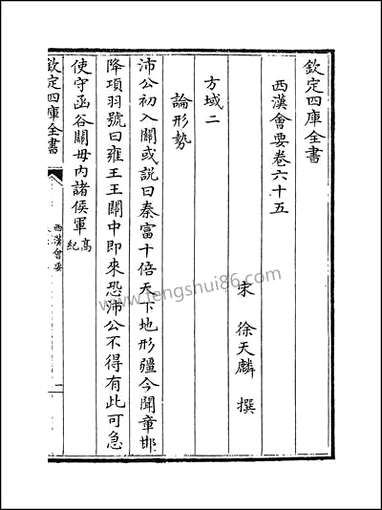 欽定四庫全書
西漢會要卷六十五
宋 徐天麟 撰
方域二
論形勢
沛公初入關或說曰秦富十倍天下地形彊今聞章邯
降項羽號曰雍王王關中即來恐沛公不得有此可急
使守函谷關毋内諸侯軍高紀
欽定四庫全書
西漢會要
一
www.fengshui86.com